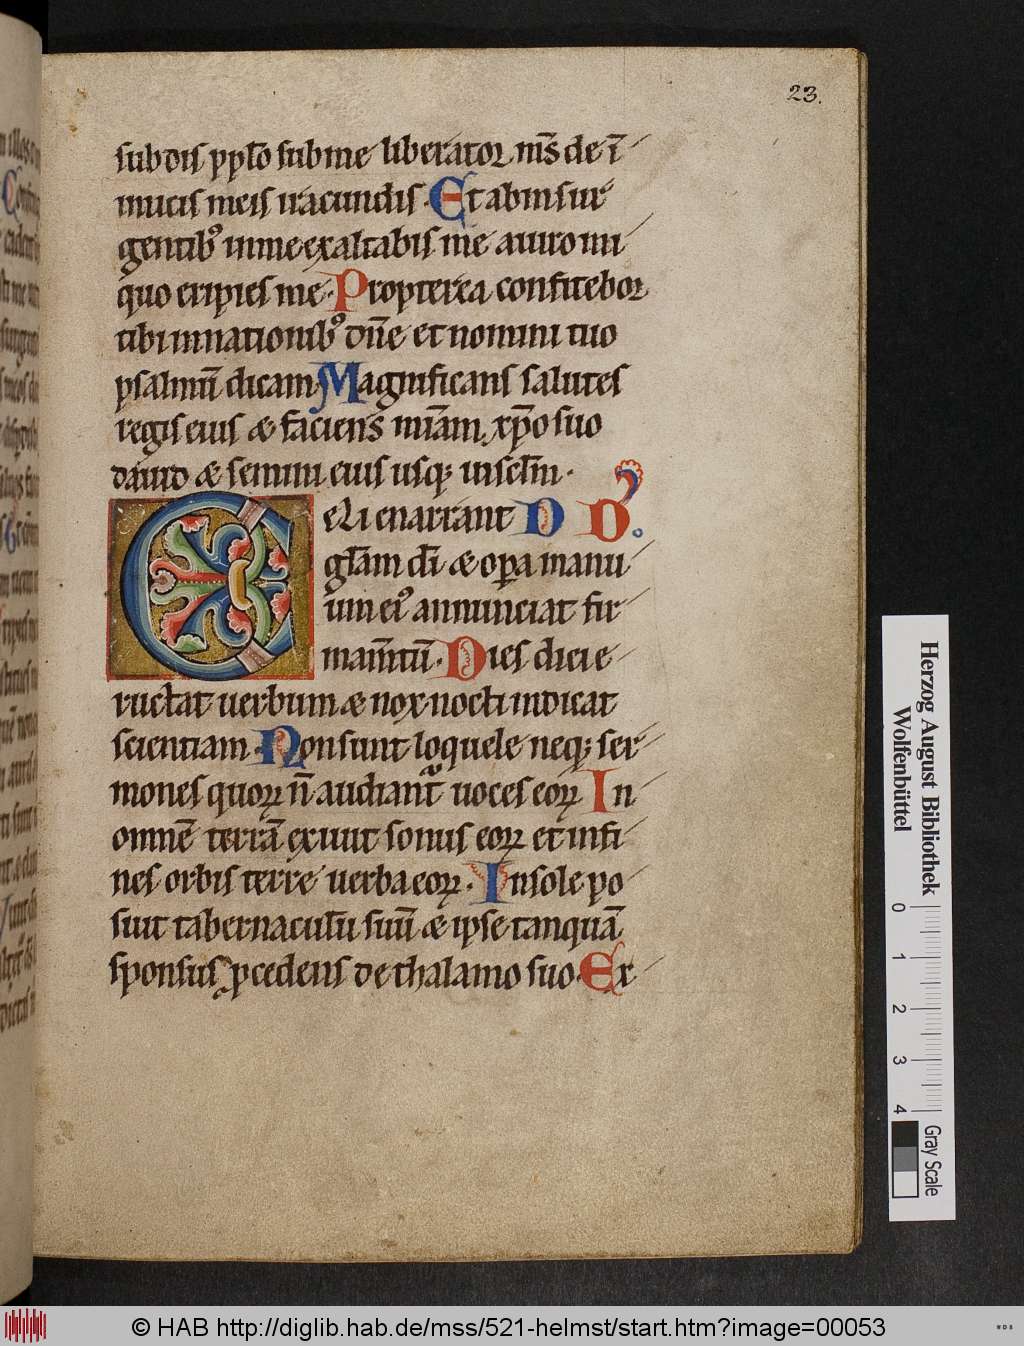 23.
subdis ppło sub me liberator m̅s de i̅
micis meis iracundis. Et ab insur
gentib⁹ in me exaltabis me a uiro ini
quo eripies me. Propterea confitebor
tibi in nationib⁹ dn̅e et nomini tuo
psalmu̅ dicam. Magnificans salutes
regis eius & faciens mia̅m xp̅o suo
dauid & semini eius usq; in sc̅łm.
Celi enarrant D D.
głam dı̅ & opa manu
um ei⁹ annunciat fir
mam̅tu̅. Dies diei e
ructat uerbum & nox nocti indicat
scientiam. Non sunt loquele neq; ser
mones quoꝝ n̅ audiant᷑ uoces eoꝝ In
omne̅ terra̅ exiuit sonus eoꝝ et in fi
nes orbis terre uerba eoꝝ. In sole po
suit tabernaculu̅ suu̅ & ipse tanqua̅
sponsus ꝓcedens de thalamo suo. Ex
Herzog August Bibliothek
Wolfenbüttel
0 1 2 3 4
Gray Scale
© HAB http://diglib.hab.de/mss/521-helmst/start.htm?image=00053